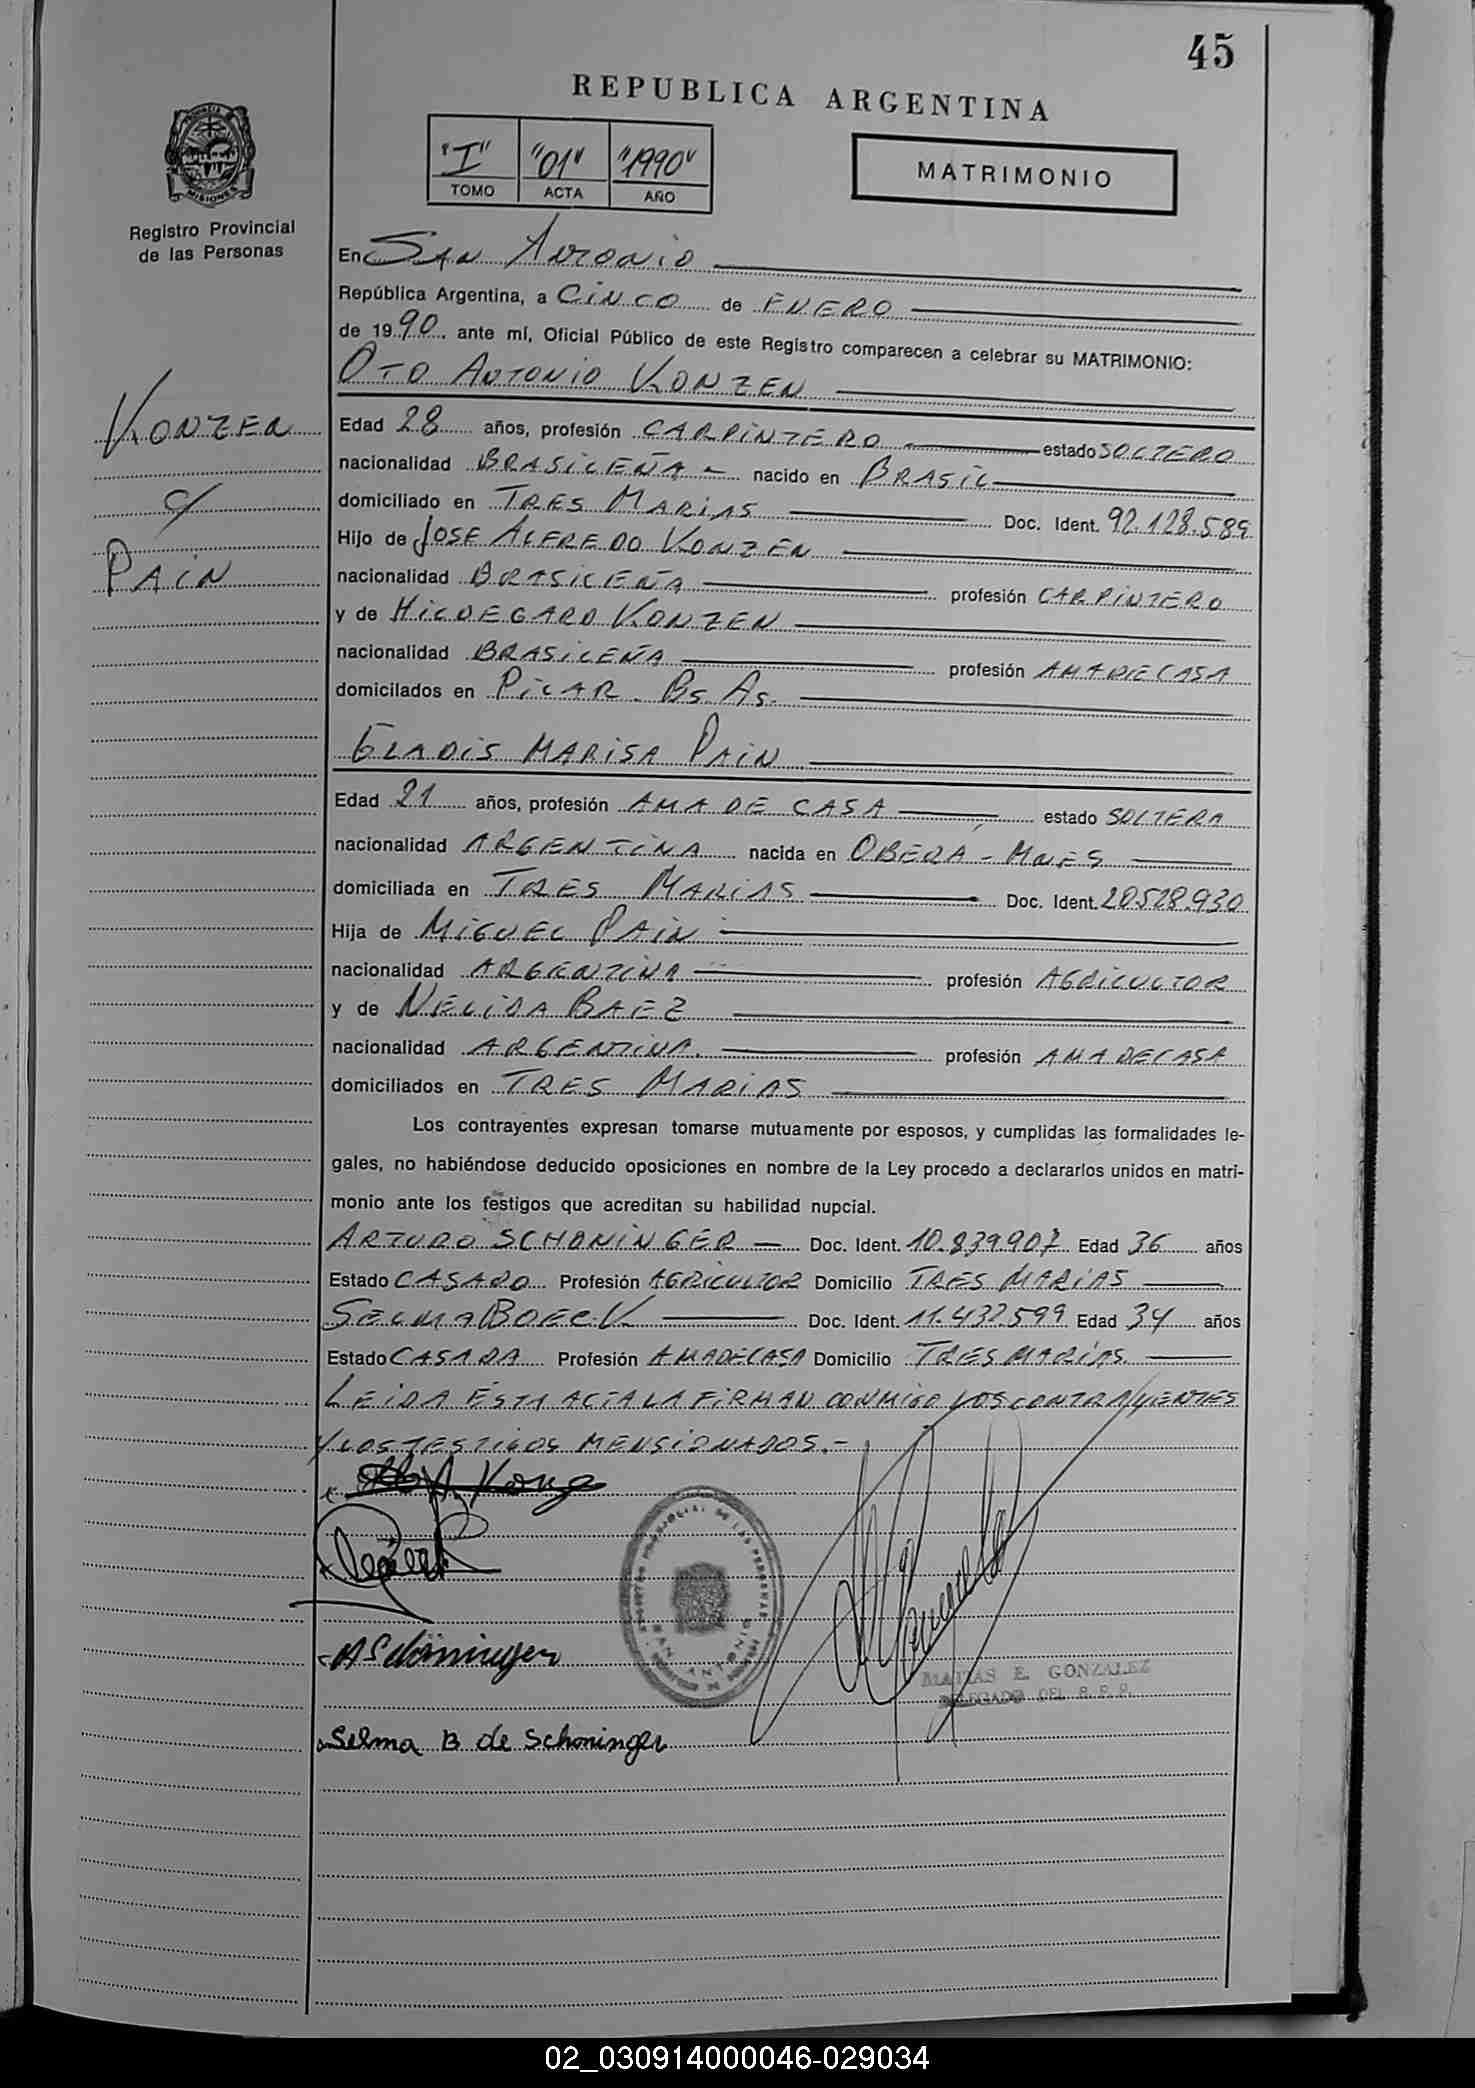 45
REPUBLICA ARGENTINA
"I" "01" "1990"
TOMO ACTA AÑO
MATRIMONIO
PROVINCIA DE
MISIONES
Registro Provincial
de las Personas
En SAN ANTONIO
República Argentina, a CINCO de ENERO
de 1990. ante mí, Oficial Público de este Registro comparecen a celebrar su MATRIMONIO:
OTO ANTONIO KONZEN
KONZEN
Edad 28 años, profesión CARPINTERO estado SOLTERO
nacionalidad BRASILEÑA nacido en BRASIL
c/
domiciliado en TRES MARIAS Doc. Ident. 92.128.589
Hijo de JOSE ALFREDO KONZEN
PAIN
nacionalidad BRASILEÑA profesión CARPINTERO
y de HILDEGARD KONZEN
nacionalidad BRASILEÑA profesión AMA DE CASA
domicilados en PILAR. Bs. As.
GLADIS MARISA PAIN
Edad 21 años, profesión AMA DE CASA estado SOLTERA
nacionalidad ARGENTINA nacida en OBERA - MNES
domiciliada en TRES MARIAS Doc. Ident. 20.528.930
Hija de MIGUEL PAIN
nacionalidad ARGENTINA profesión AGRICULTOR
y de NELIDA BAEZ
nacionalidad ARGENTINA. profesión AMA DE CASA
domiciliados en TRES MARIAS
Los contrayentes expresan tomarse mutuamente por esposos, y cumplidas las formalidades le-
gales, no habiéndose deducido oposiciones en nombre de la Ley procedo a declararlos unidos en matri-
monio ante los festigos que acreditan su habilidad nupcial.
ARTURO SCHONINGER — Doc. Ident. 10.839.907 Edad 36 años
Estado CASADO Profesión AGRICULTOR Domicilio TRES MARIAS
SELMA BOECK Doc. Ident. 11.432.599 Edad 34 años
Estado CASADA Profesión AMA DE CASA Domicilio TRES MARIAS
LEIDA ESTA ACTA LA FIRMAN CONMIGO LOS CONTRAYENTES
Y LOS TESTIGOS MENSIONADOS.-
A Schöninger
SAN ANTONIO
MATIAS E. GONZALEZ
DELEGADO DEL R.P.P.
Selma B de Schoninger
02_030914000046-029034